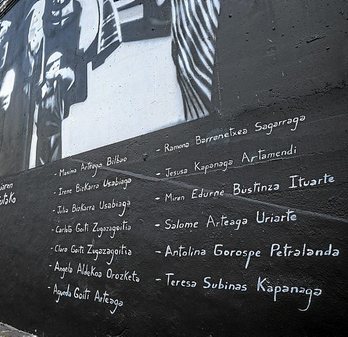 - Maxima Arteaga Bilbao
- Irene Bizkarra Usabiaga
- Julia Bizkarra Usabiaga
- Carlota Goiti Zugazagoitia
- Clara Goiti Zugazagoitia
- Angela Aldekoa Orozketa
- Agueda Goiti Arteaga
- Ramona Barrenetxea Sagarraga
- Jesusa Kapanaga Artamendi
- Miren Edurne Bustinza Ituarte
- Salome Arteaga Uriarte
- Antolina Gorospe Petralanda
- Teresa Subinas Kapanaga